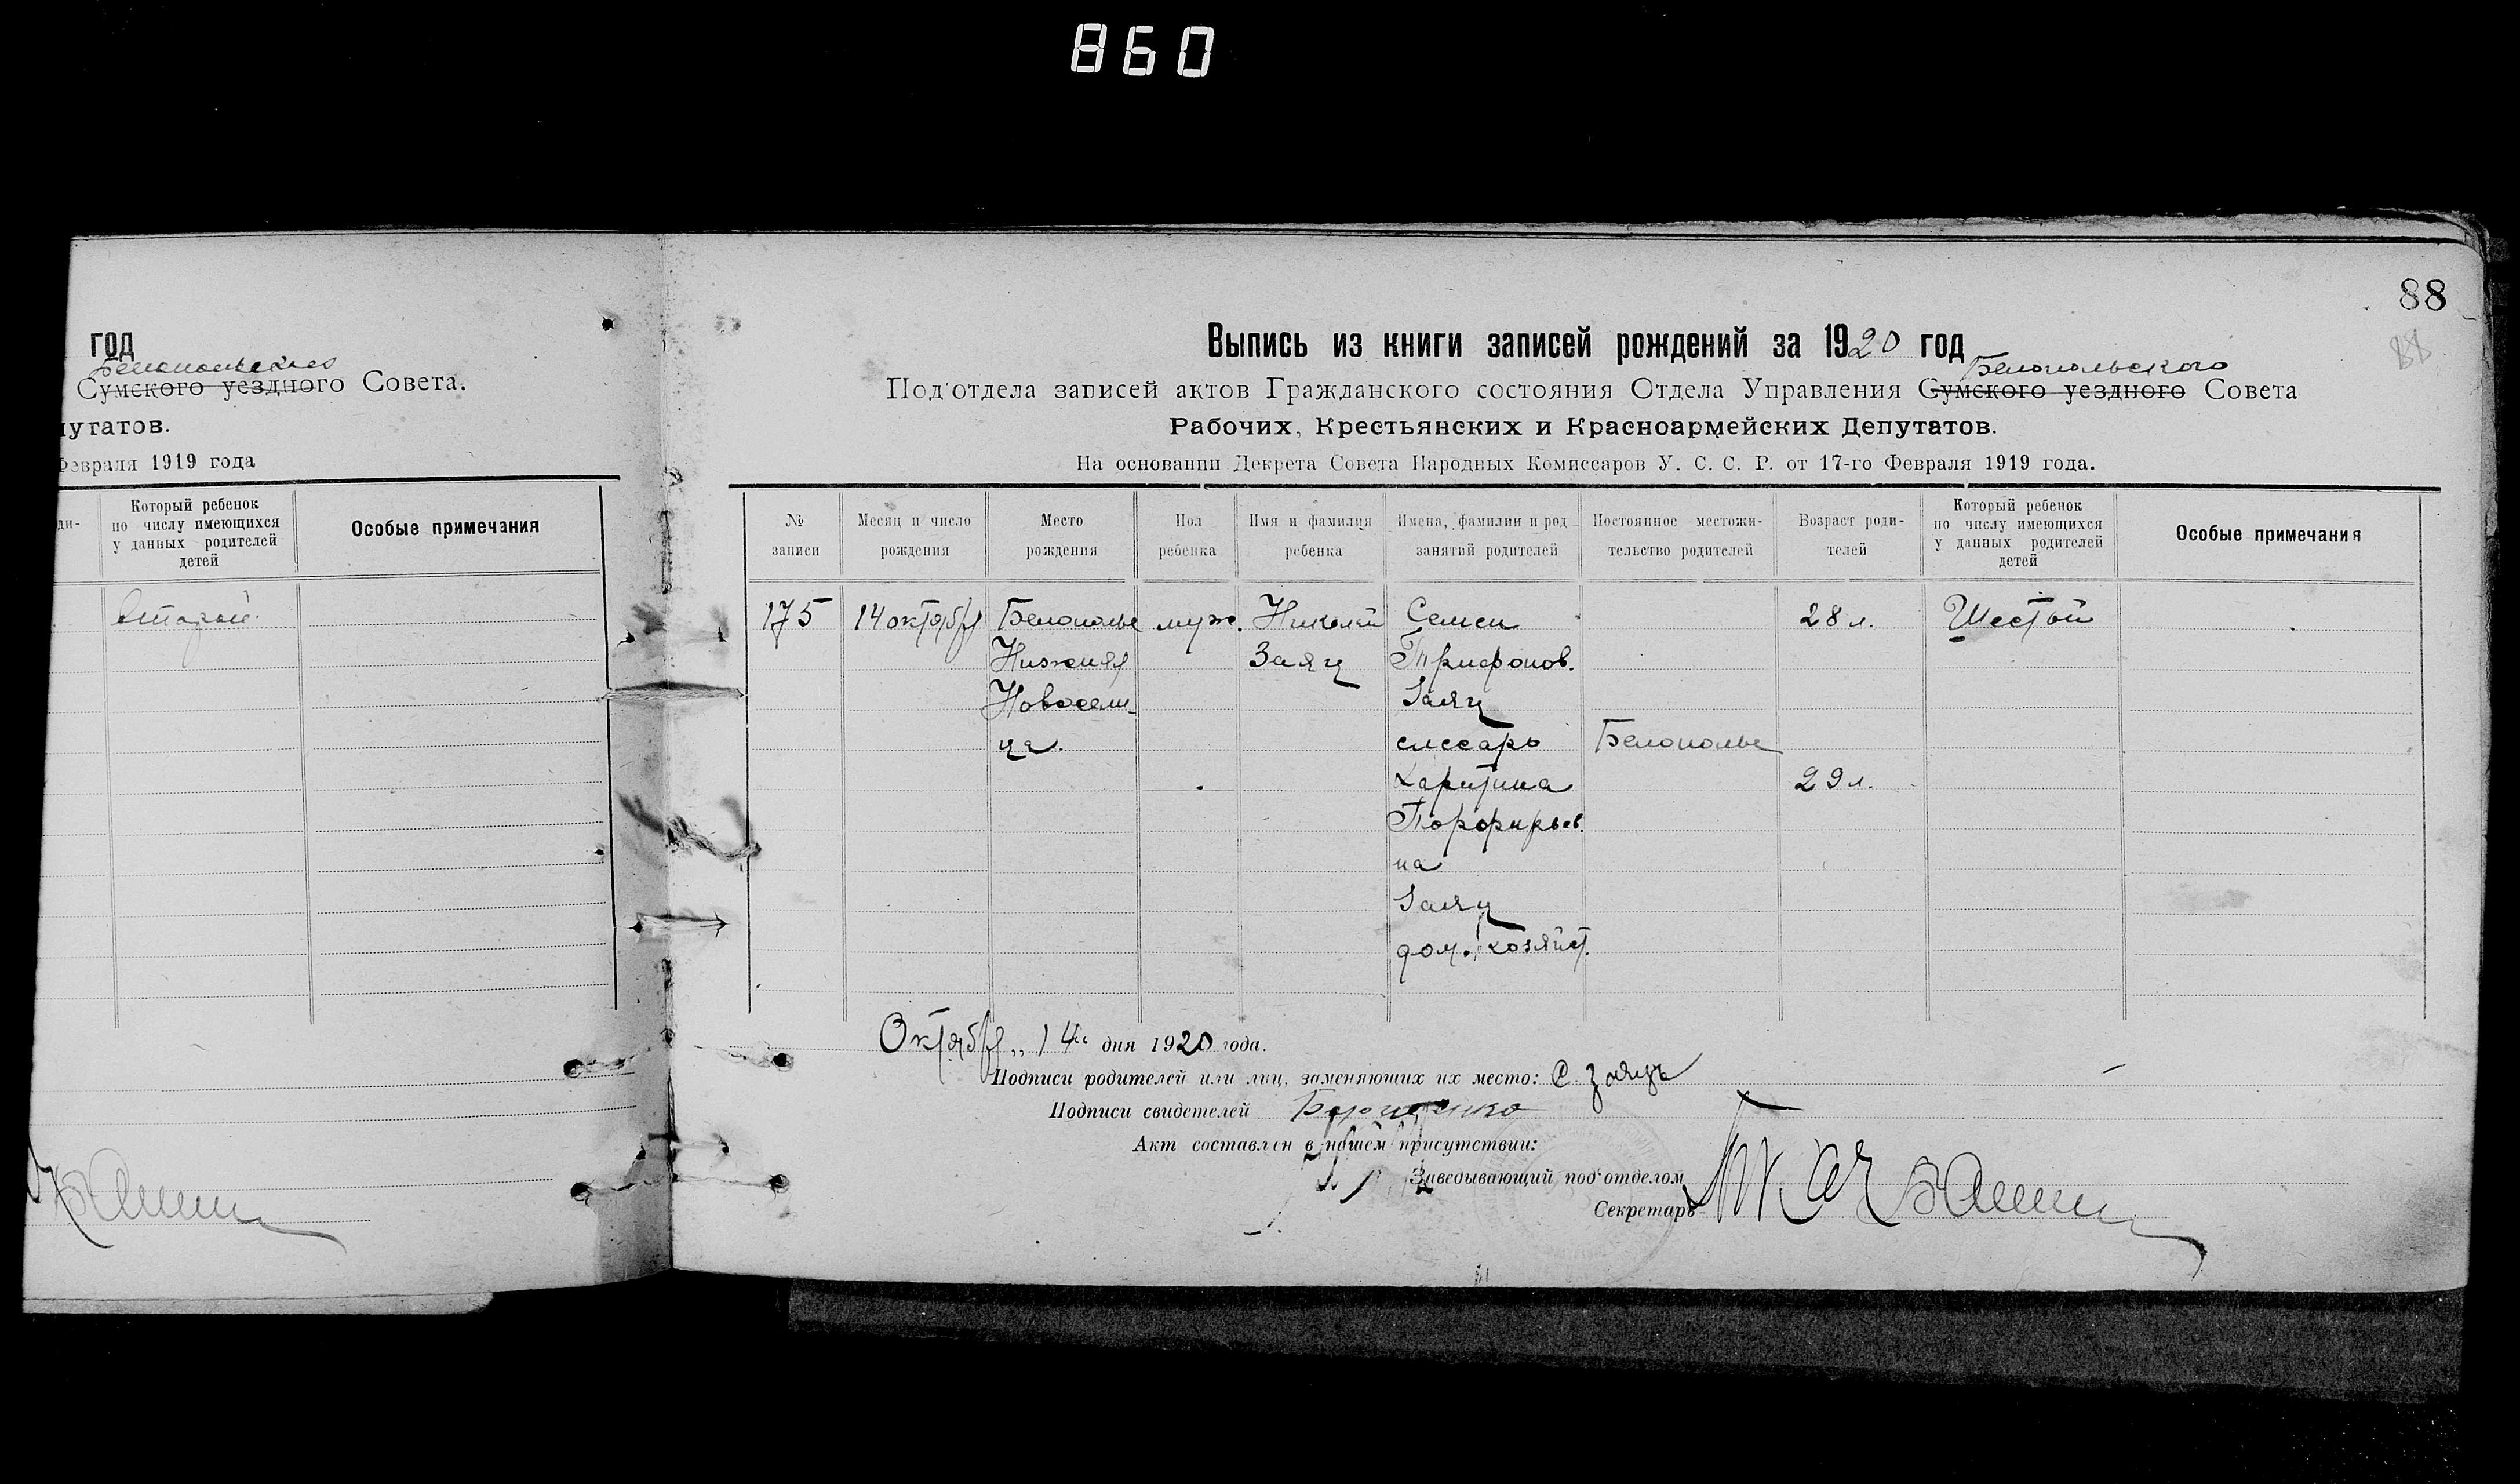 860
год
Белопольского
Сумского уездного Совета.
путатов.
Февраля 1919 года
ди-
Который ребенок
по числу имеющихся
у данных родителей
детей
Особые примечания
второй.
88
88
Выпись из книги записей рождений за 1920 год
Белопольского
Под'отдела записей актов Гражданского состояния Отдела Управления Сумского уездного Совета
Рабочих, Крестьянских и Красноармейских Депутатов.
На основании Декрета Совета Народных Комиссаров У. С. С. Р. от 17-го Февраля 1919 года.
№
записи
Месяц и число
рождения
Место
рождения
Пол
ребенка
Имя и фамилия
ребенка
Имена, фамилии и род
занятий родителей
Постоянное местожи-
тельство родителей
Возраст роди-
телей
Который ребенок
по числу имеющихся
у данных родителей
детей
Особые примечания
175
14 октября
Белополье
Нижняя
Новосели-
ца.
муж.
Николай
Заяц
Семен
Трифонов.
Заяц
слесарь
Харитина
Порфирьев
на
Заяц
дом. хозяйст.
Белополье
28 л.
29 л.
Шестой
Октября „14“ дня 1920 года.
Подписи родителей или лиц, заменяющих их место: С. Заяцъ
Подписи свидетелей
Акт составлен в нашем присутствии:
Заведывающий под'отделом
Секретарь